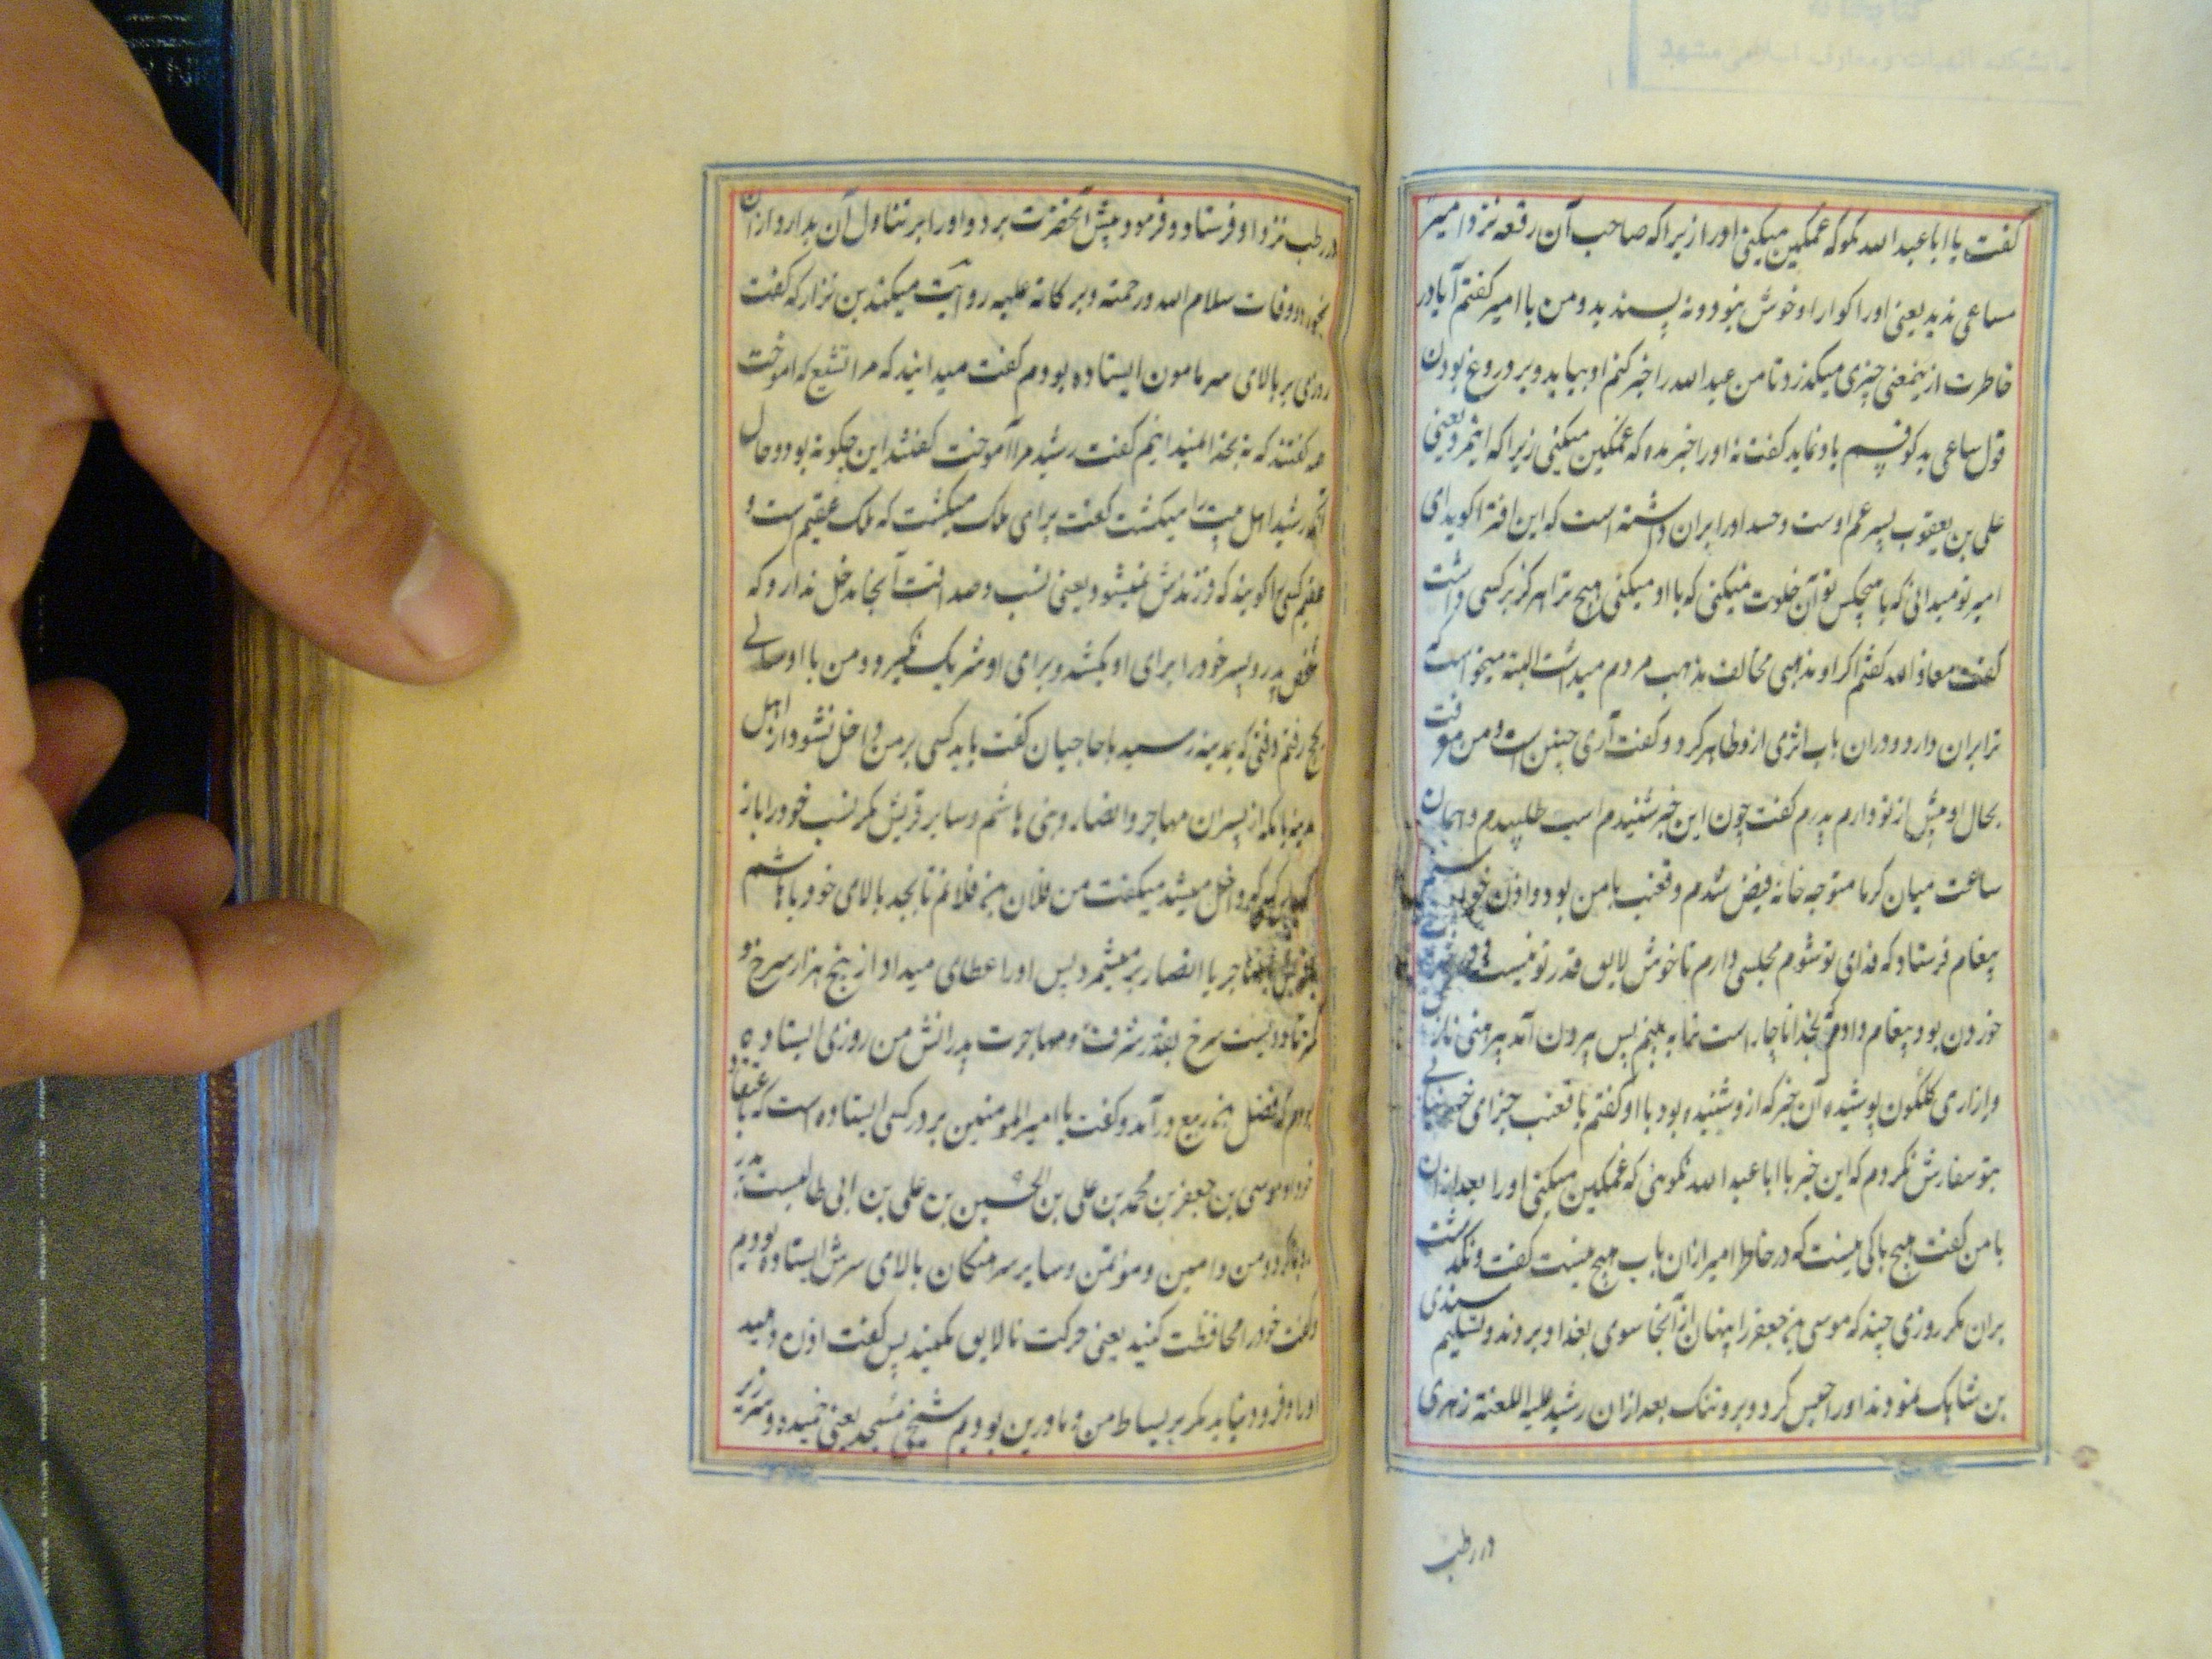 گفت یا ابا عبد الله مگو که غمگین میکنی او را زیرا که صاحب آن رقعه نزد امیر
مساعی ندید یعنی او را گوارا و خوش نبود و نه پسندید و من با امیر گفتم آیا در
خاطرت ازینمعنی چیزی میگذرد تا من عبد الله را خبر کنم او بیاید و بر دروغ بودن
قول ساعی بدگو قسم یاد نماید گفت نه او را خبر مده که غمگین میکنی زیرا که یعنی
علی بن یعقوب پسر عم اوست و حسد او را بران داشته است که این افترا گوید ای
امیر تو میدانی که با هیچکس تو آن خلوت نمیکنی که با او میکنی هیچ ترا هرگز بر کسی داشت
گفت معاذ الله گفتم اگر او مذهبی مخالف مذهب مردم میداشت البته میخواست که
ترا بران دارد و دران باب اثری ازو ظاهر گردد گفت آری چنین است و من معرفت
بحال او پیش از تو دارم پدرم گفت چون این خبر شنیدم اسب طلبیدم و همان
ساعت میان گرما متوجه خانه فیض شدم و قعنب با من بود و اذن
پیغام فرستاد که فدای تو شوم مجلسی دارم تا خوش لایق قدر تو نیست
خوردن بود پیغام دادم که بخدا ناچار است مرا به بینم پس بیرون آمد پیرهنی نازک
و ازاری گلگون پوشیده آن خبر که ازو شنیده بود با او گفتم با قعنب جزای
بتو سفارش نکردم که این خبر با ابا عبد الله نگوئی که غمگین میکنی او را بعد ازان
با من گفت هیچ باکی نیست که در خاطر امیر ازان باب هیچ نیست گفت و نگذشت
بران مگر روزی چند که موسی بن جعفر را پنهان از آنجا سوی بغداد بردند و تسلیم سندی
بن شاهک نمودند او را حبس کرد و برو تنگ بعد ازان رشید علیه اللعنه زهری
در رطب
در رطب نزد او فرستاد و فرمود پیش آنحضرت برد و او را بر تناول آن بدارد و ازان
بخورد و وفات سلام الله و رحمته و برکاته علیه روایت میکند بن نزار که گفت
روزی بر بالای سر مامون ایستاده بودم گفت میدانید که مرا تشیع که آموخت
همه گفتند که نه بخدا نمیدانیم گفت رشید مرا آموخت گفتند این چگونه بود و حال
آنکه رشید اهل بیت را میکشت گفت برای ملک میکشت که ملک عقیم است و
عقیم کسی را گویند که فرزندش نمیشود یعنی نسب و صداقت آنجا مدخل ندارد که
شخص پدر و پسر خود را برای او بکشد و برای او شریک نگیرد و من با او سالی
بحج رفتم وقتی که بمدینه رسید با حاجبان گفت باید کسی بر من داخل نشود از اهل
مدینه یا مکه از پسران مهاجر و انصار و بنی هاشم و سایر قریش مگر نسب خود را باز
گوید پس کسی که داخل میشد میگفت من فلان بن فلانم تا بجد بالای خود با هاشم
یا قریش یا مهاجر یا انصار بر میشمرد پس او را عطای میداد از پنج هزار سرخ و
کمتر تا دویست سرخ بقدر شرف و مهاجرت پدرانش من روزی ایستاده
بودم که فضل بن ربیع در آمد و گفت یا امیر المومنین بر در کسی ایستاده است که
او موسی بن جعفر بن محمد بن علی بن الحسین بن علی بن ابی طالبست پدر
کرد و من و امین و موتمن و سایر سرهنگان بالای سرش ایستاده بودیم
و گفت خود را محافظت کنید یعنی حرکت نالایق مکنید پس گفت اذن دهید
او را و فرود نیاید مگر بر بساط من و ما درین بودیم شیخی مسجد یعنی خمیده و سر بزیر